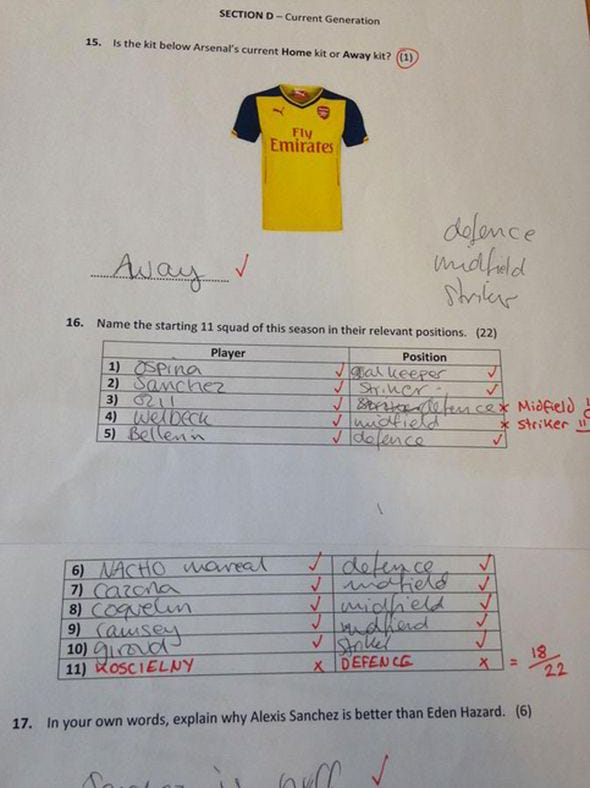 SECTION D – Current Generation
15. Is the kit below Arsenal's current Home kit or Away kit? (1)
Fly
Emirates
defence
midfield
striker
Away ✓
16. Name the starting 11 squad of this season in their relevant positions. (22)
Player Position
1) Ospina ✓ goal keeper ✓
2) Sanchez ✓ Striker ✓
3) Ozil ✓ defence x Midfield
4) Welbeck ✓ midfield x striker
5) Bellerin ✓ defence ✓
6) NACHO monreal ✓ defence ✓
7) cazorla ✓ midfield ✓
8) coquelin ✓ midfield ✓
9) ramsey ✓ midfield ✓
10) giroud ✓ Striker ✓
11) KOSCIELNY x DEFENCE x = 18/22
17. In your own words, explain why Alexis Sanchez is better than Eden Hazard. (6)
Sanchez is buff ✓